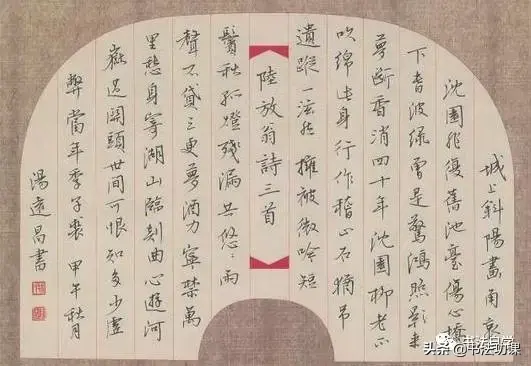 城上斜陽畫角哀
沈園非復舊池臺傷心橋
下春波綠曾是驚鴻照影來
夢斷香消四十年沈園柳老不
吹綿此身行作稽山土猶吊
遺蹤一泫然擁被微吟短
陸放翁詩三首
鬢秋孤燈殘漏共悠〻雨
聲不貸三更夢酒力寧禁萬
里愁身寄湖山臨剡曲心遊河
嶽過關頭世間可恨知多少虛
弊當年季子裘 甲午秋月
湯遠昌書
书法自学
头条 @书法功课